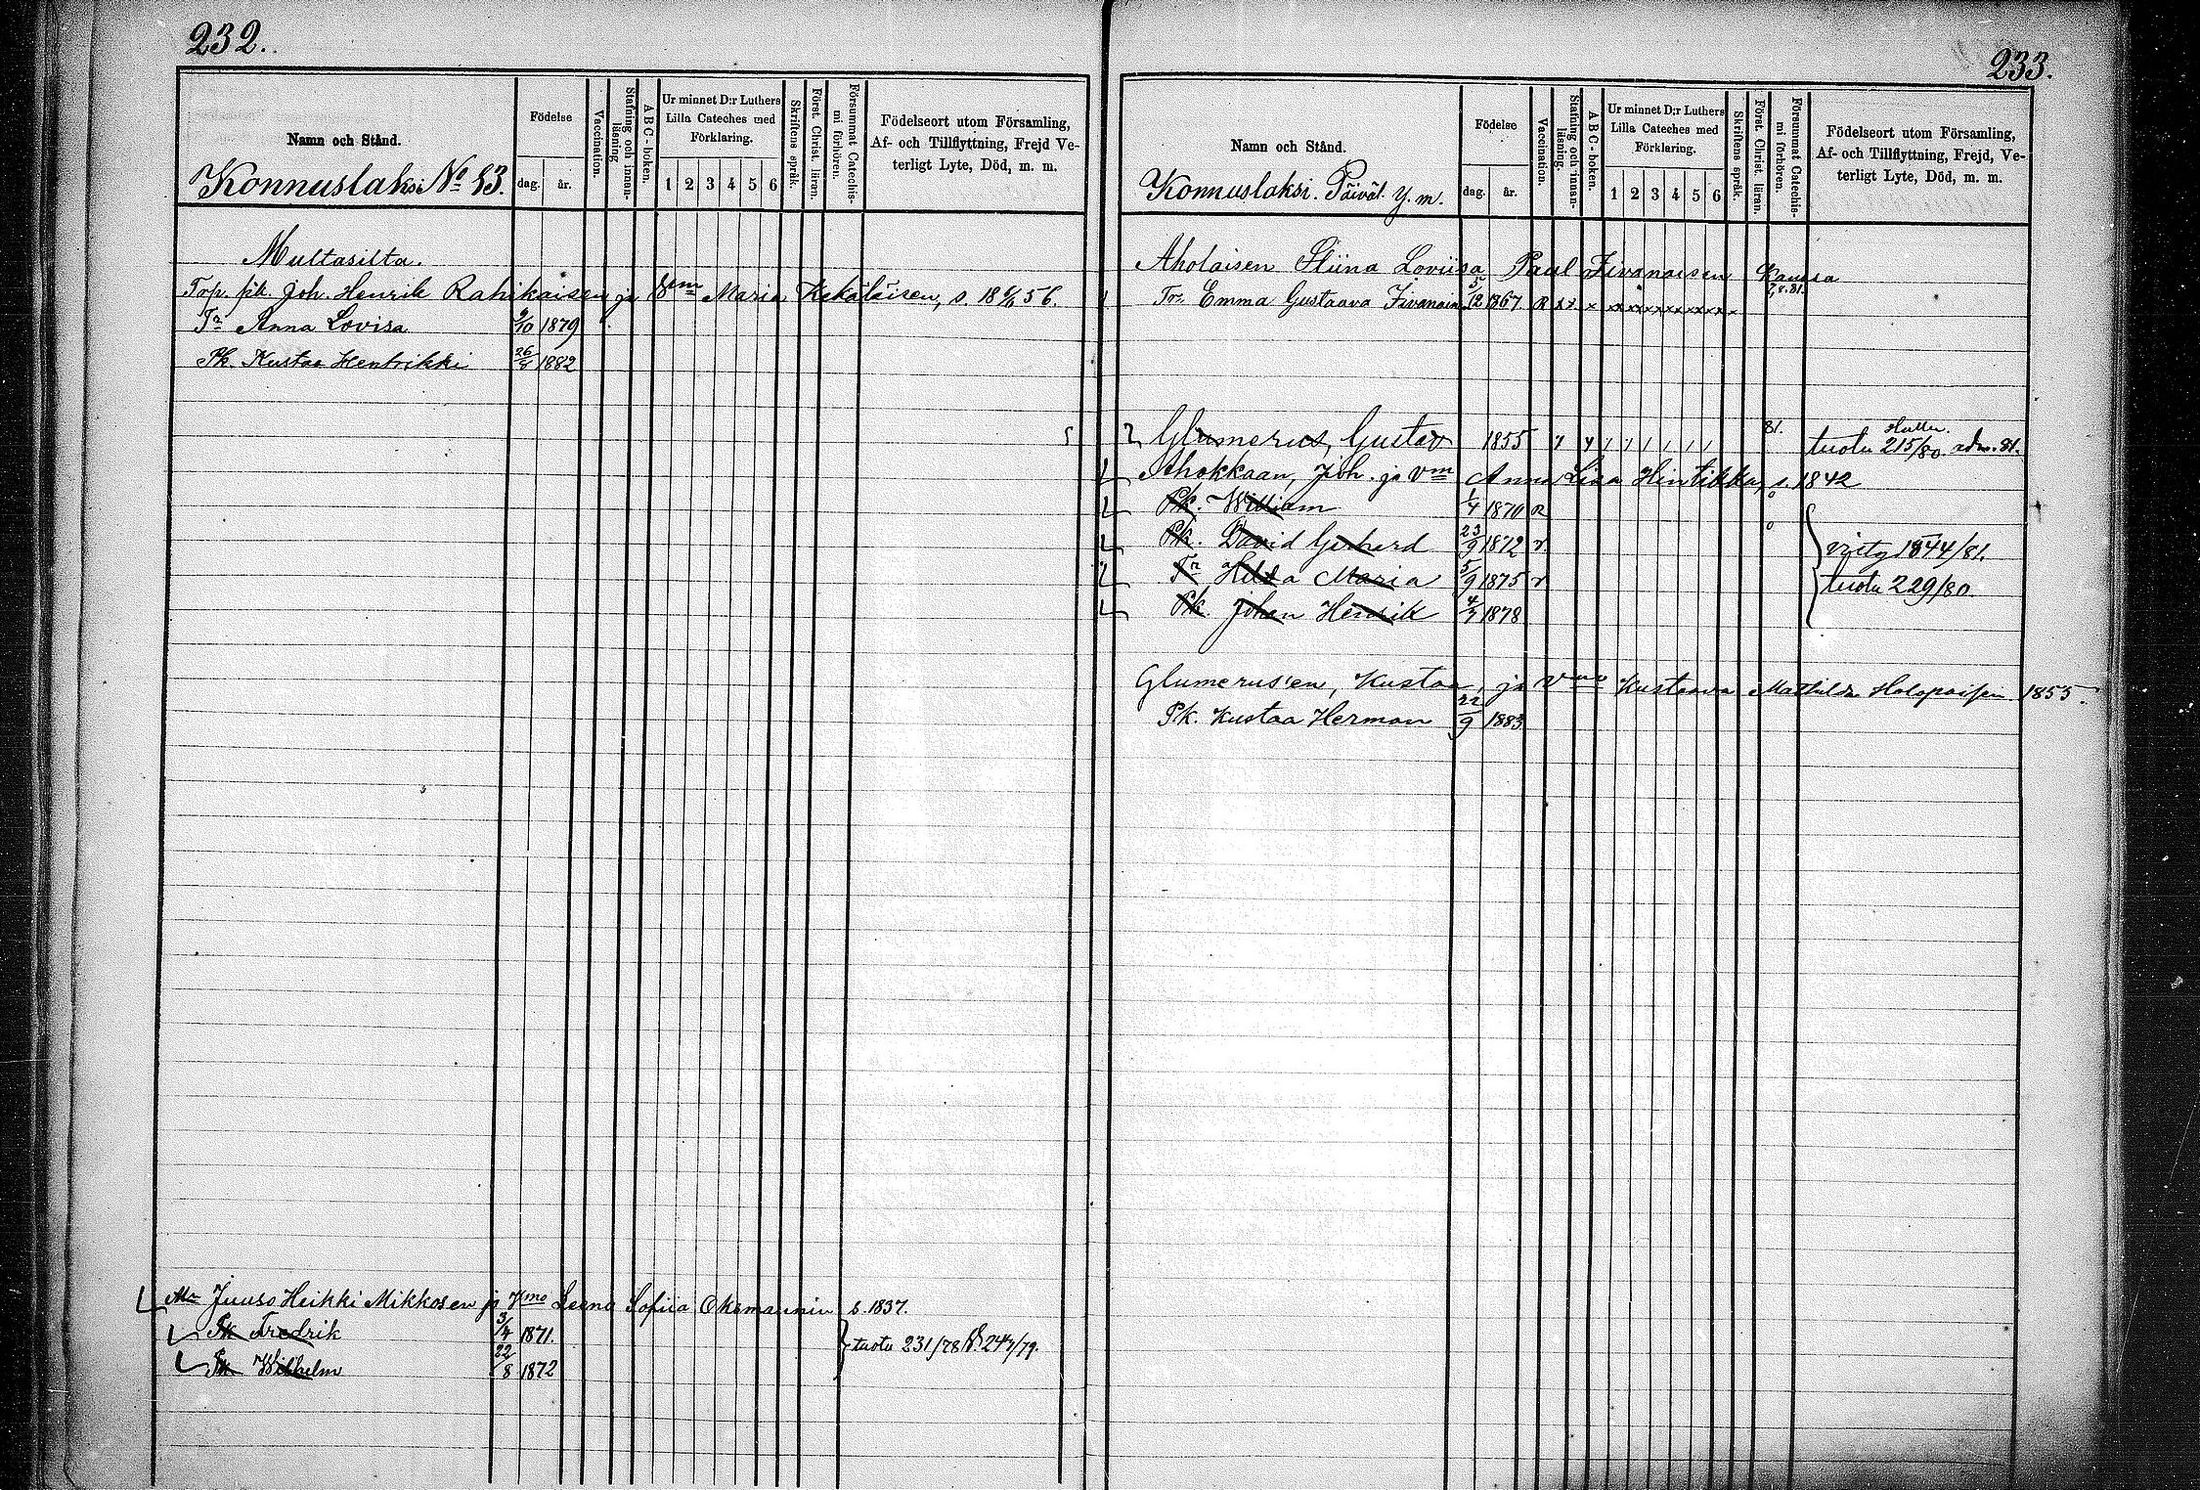 232.
Namn och Stånd.
Födelse
dag. år.
Vaccination.
Stafning och innan-läsning
ABC-boken.
Ur minnet D:r Luthers Lilla Cateches med Förklaring.
1 2 3 4 5 6
Skriftens språk.
Först. Christ. läran.
Försummat Catechismi förhören.
Födelseort utom Församling,
Af- och Tillflyttning, Frejd Ve-
terligt Lyte, Död, m. m.
Konnuslaksi No 33.
Multasilta.
Joh. Henrik Rahikaisen ja Maria Kekäläisen, s. 18 56.
Tr Anna Lovisa 9/10 1879
Pk. Kustaa Hentrikki 26/8 1882
Mr Juuso Heikki Mikkosen ja Vmo Leena Sofiia s. 1837.
Pk Fredrik 3/4 1871.
Pk Wilhelm 22/8 1872
tuotu 231/78 247/79.
233.
Namn och Stånd.
Födelse
dag. år.
Vaccination.
Stafning och innan-läsning.
ABC-boken.
Ur minnet D:r Luthers Lilla Cateches med Förklaring.
1 2 3 4 5 6
Skriftens språk.
Först. Christ. läran.
Försummat Catechismi förhören.
Födelseort utom Församling,
Af- och Tillflyttning, Frejd, Ve-
terligt Lyte, Död, m. m.
Konnuslaksi. Päiväl. y. m.
Aholaisen Stiina Loviisa Paul Iivanaisen kanssa
Tr. Emma Gustaava 5/12 1867. R x x. x x x x x x x x x x
Glumerus, Gustav 1855 81. tuotu 215/80. adm. 81.
Ahokkaan, Joh. ja Vm Anna Lisa Hintikka, s. 1842
Pk. William 1/4 1870 R
Pk. David Gerhard 23/9 1872 r.
Tr Hilda Maria 5/9 1875 r
Pk. Johan Henrik 4/7 1878
viety 1844/81.
tuotu 229/80.
Glumerus'en, Kustaa, ja Vmo Kustaava Mathilda Holopaisen 1855.
Pk. Kustaa Herman 22/9 1883